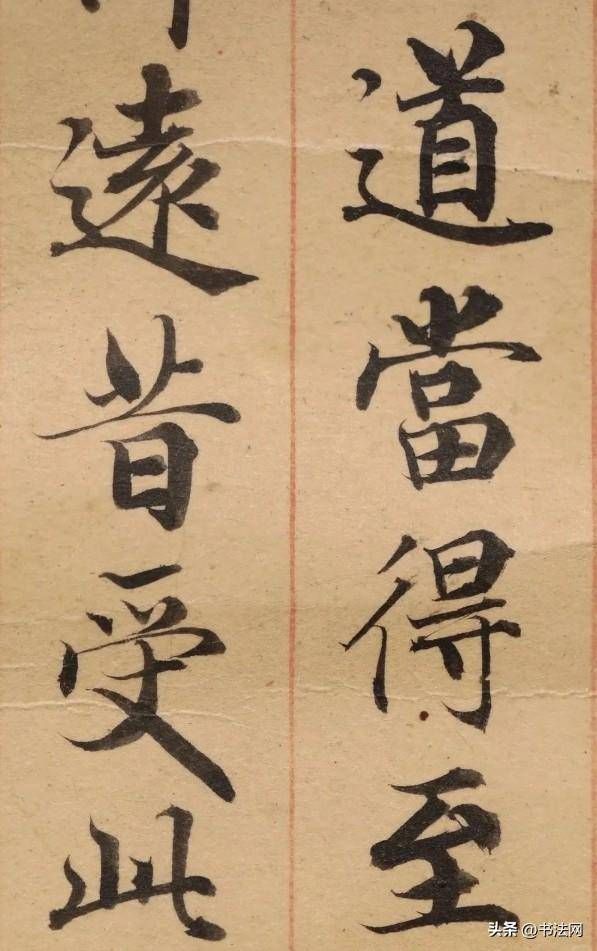 道當得至
遠昔受此
头条 @书法网